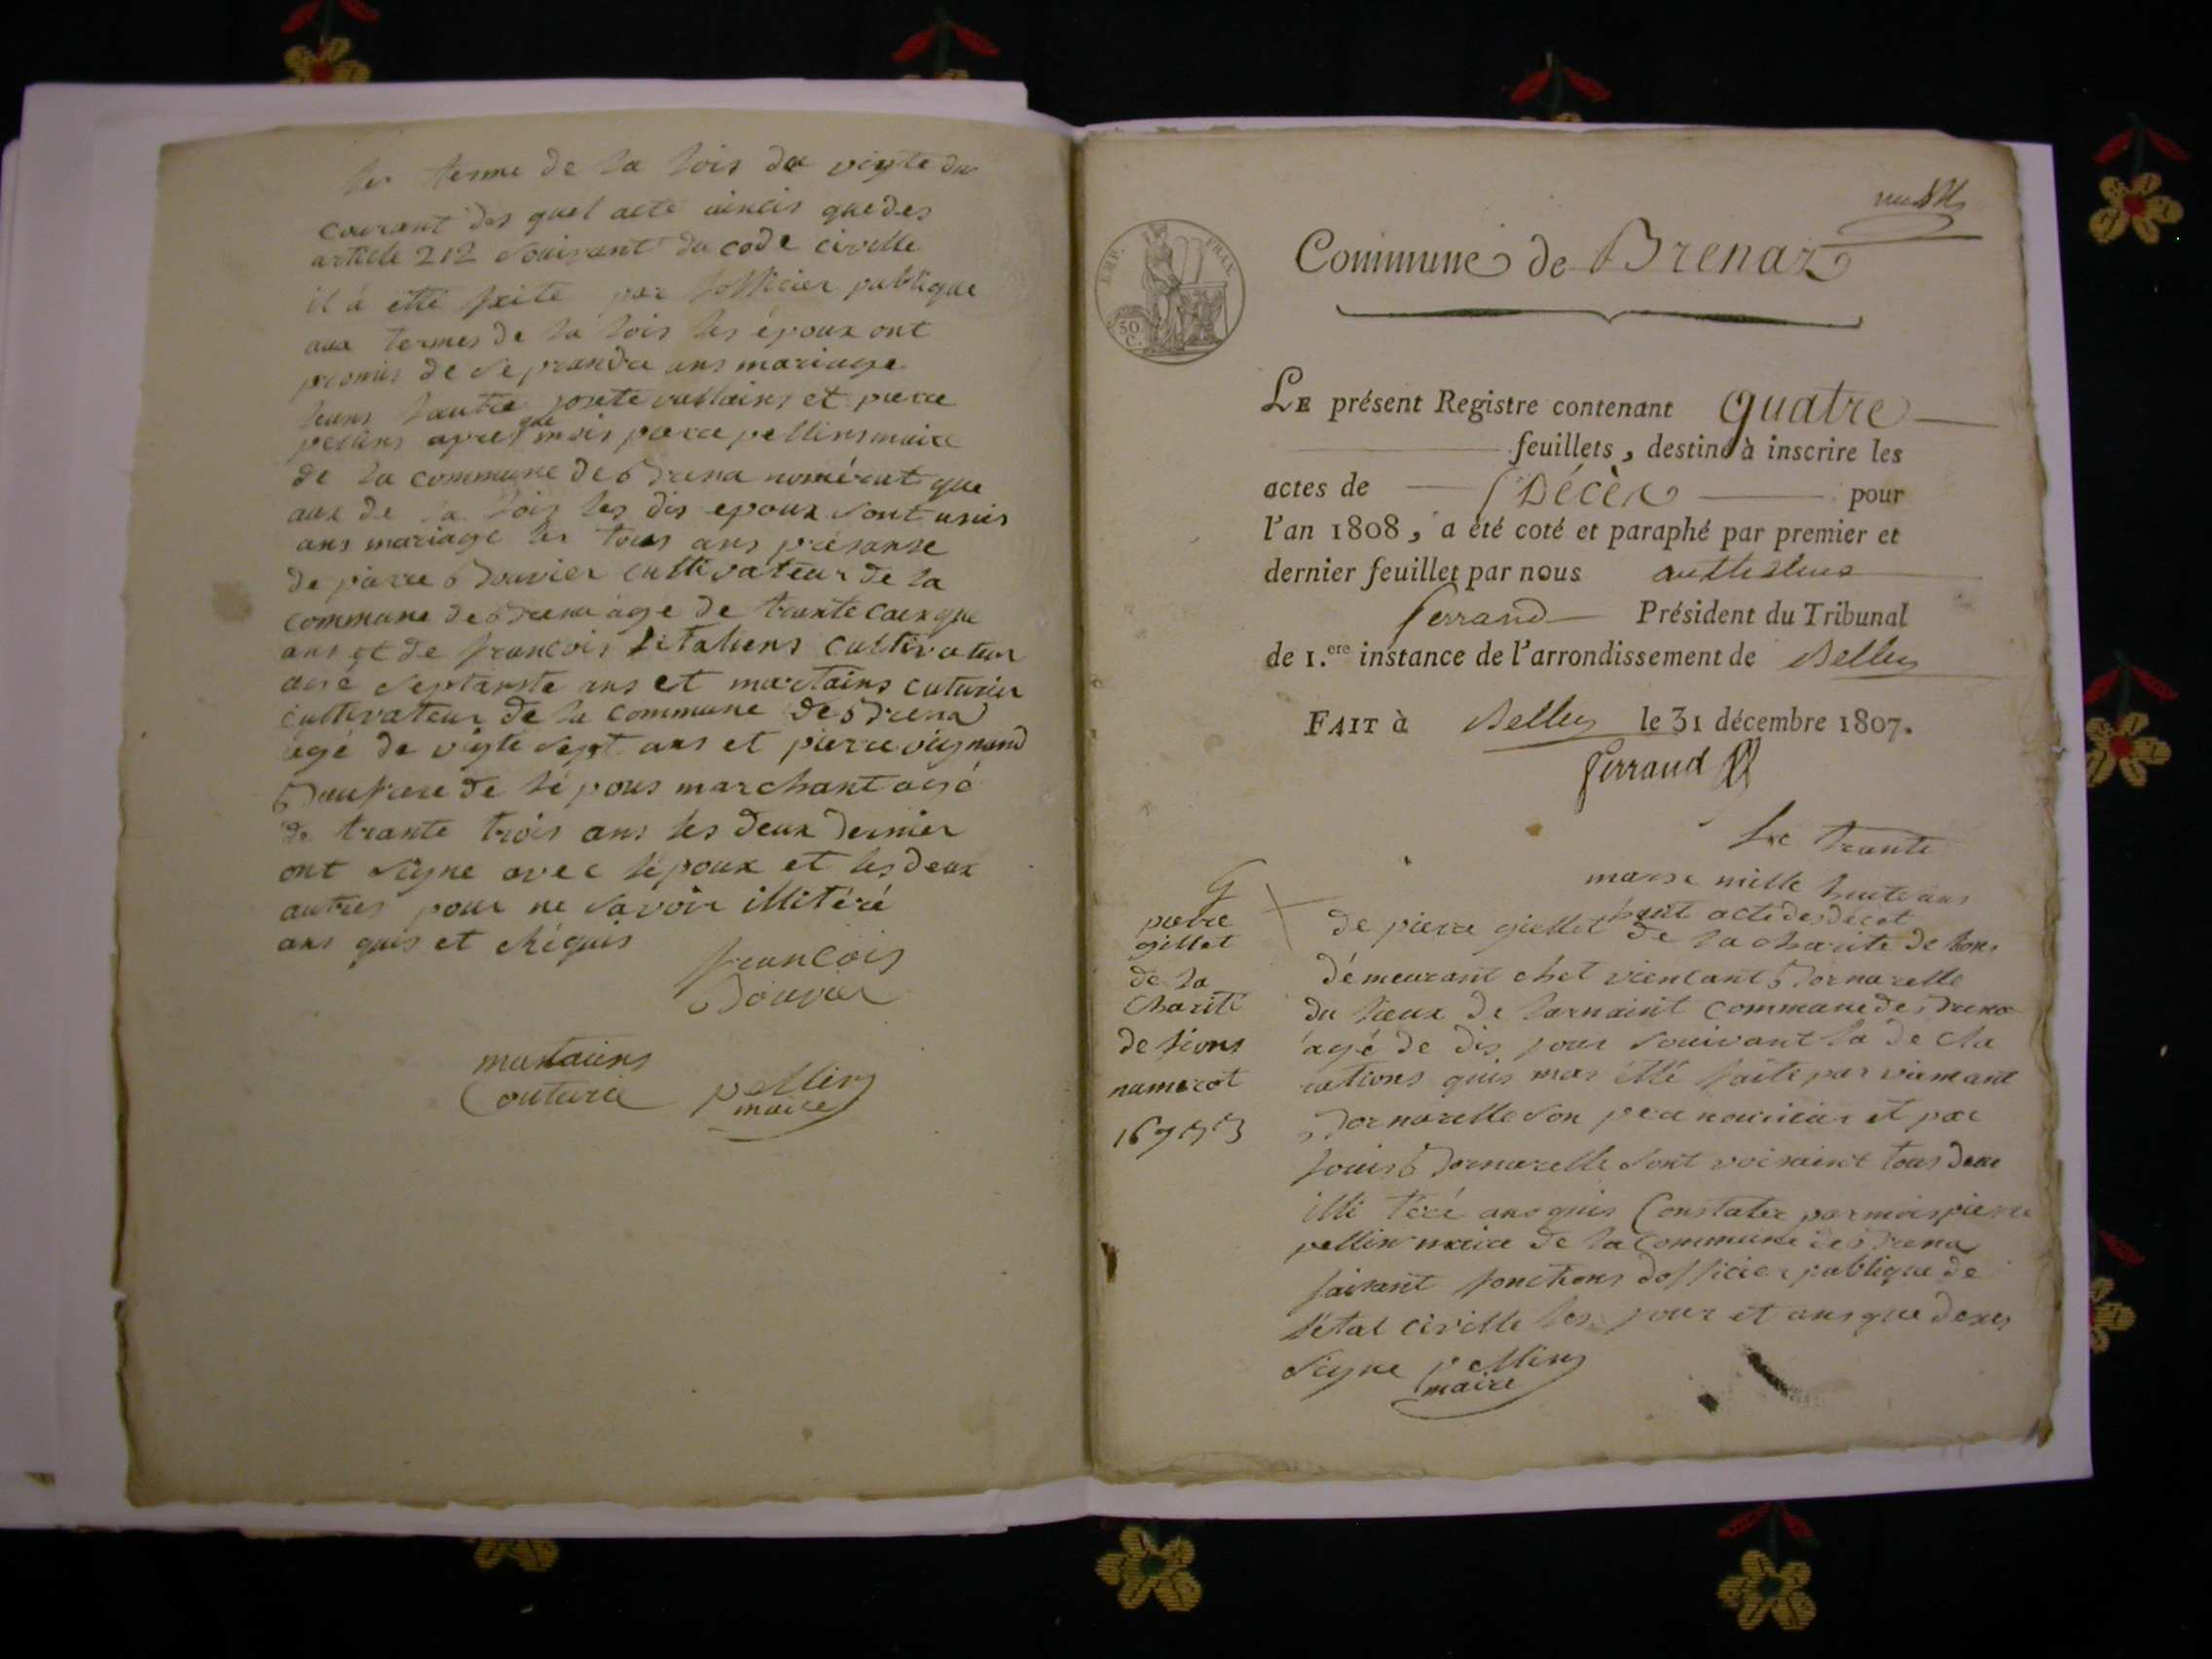 les terme de la lois du vigte du
courant des quel acte aincis que des
article 212 souivant du code civille
il à etté faite par lofficier publique
aux termes de la lois les époux ont
promis de se prandre ans mariage
leuns lautre et pierre
pellins apres que mois piere pellins maire
de la commune de Brena que
aux de la lois les dis epoux sont unis
ans mariage les tous ans présanse
de piere Bouvier cultivateur de la
commune de Brena age de trante cainque
ans et de francois litaliens cultivateur
agé septante ans et martains cuturier
cultivateur de la commune de Brena
agé de vigte sept ans et pierre vignand
Baufrere de lépous marchant agé
de trante trois ans les deux dernier
ont signe avec lépoux et les deux
autres pour ne savoir illitéré
ans quis et réquis
francois
Bouvier
martains
Couturie
pellins
maire
EMP. FRAN.
50
C.
Commune de Brenaz
LE présent Registre contenant quatre
feuillets, destiné à inscrire les
actes de Décès pour
l'an 1808, a été coté et paraphé par premier et
dernier feuillet par nous anthelme
ferrand Président du Tribunal
de 1.ere instance de l'arrondissement de Belley
FAIT à Belley le 31 décembre 1807.
ferrand
Le trante
marse mille huite ans
huit acte de décet
pierre
gillet
de la
charité
de lions
numerot
de piere giellet de la charite de lions
démeurant chet viencant Bornarelle
du lieux de larnaint commune de Brena
agé de dis jour souivant la de cla
rations quis mas etté faite par viencant
Bornarelle son pere nouricier et par
louis Bornarelle sont voisaint tous deux
illi téré ans quis Constater par mois pierre
pellin maire de la commune de Brena
faisant fonctions dofficier publique de
létat civille les jour et ans que desus
signe pellins
maire